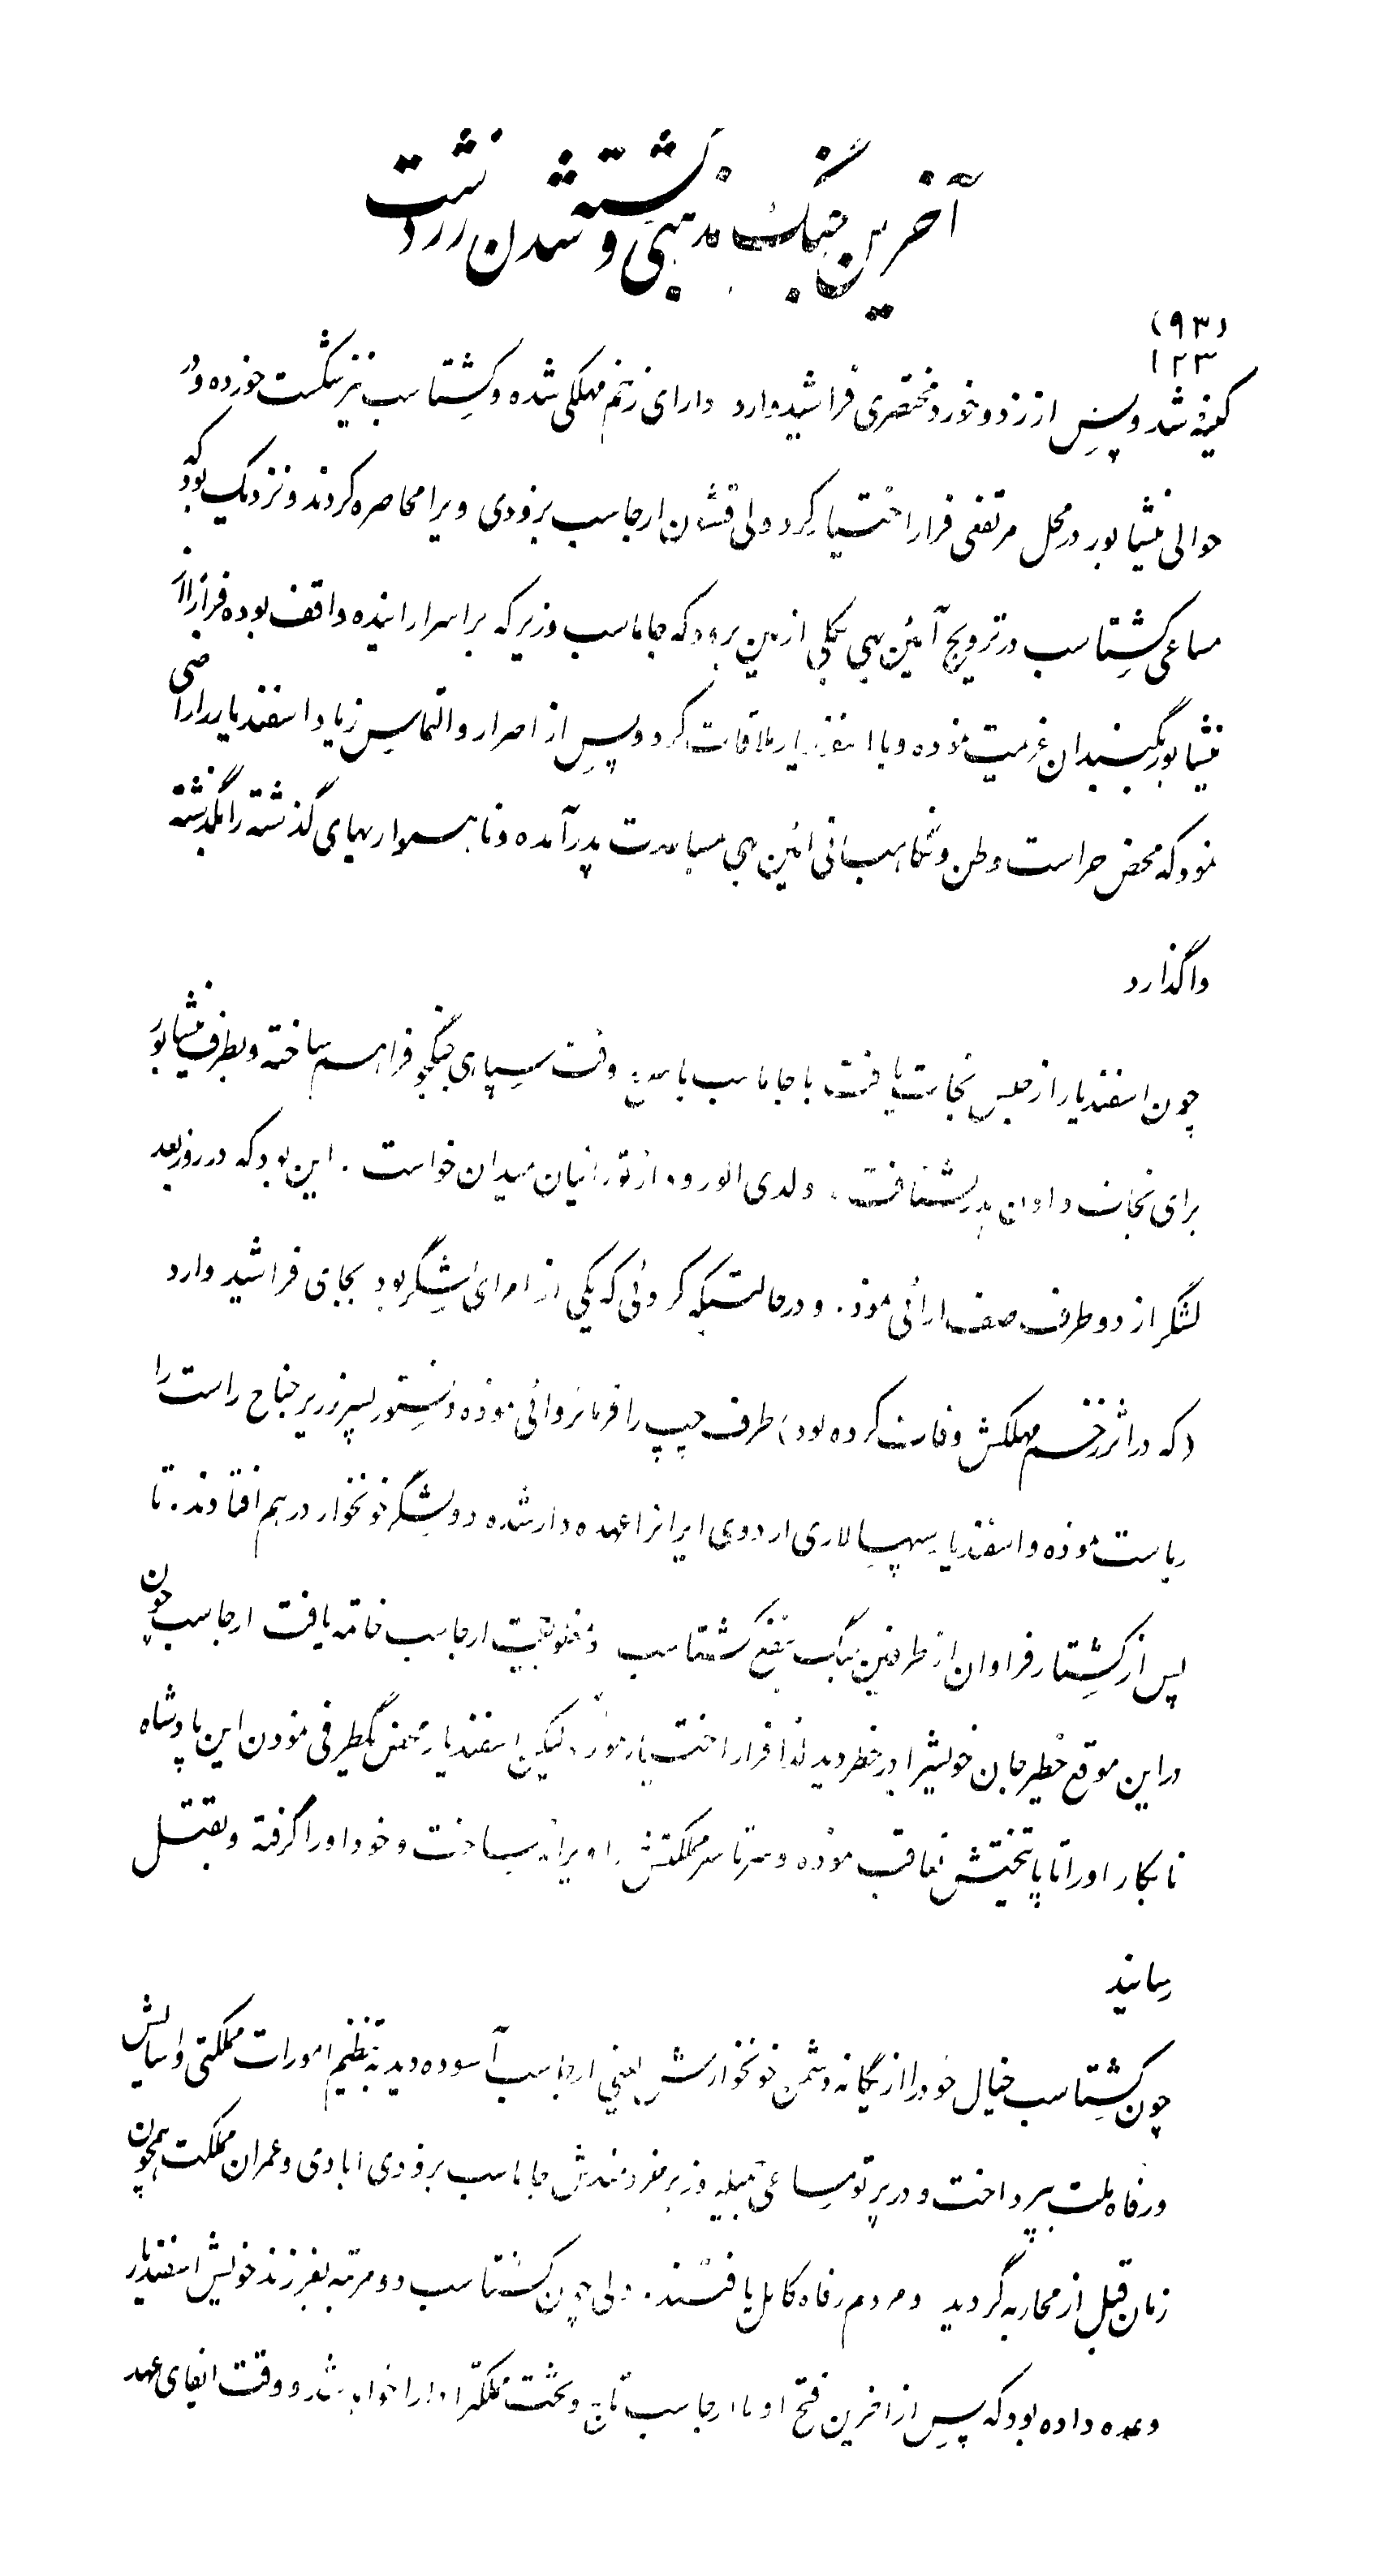 آخرین جنگ مذهبی و کشته شدن زردشت
(٩٣)
١٢٣
کیفه شد و پس از زد و خورد مختصری فراشیدوارد دارای زخم مهلکی شده و کشتاسب نیز شکست خورده و در
حوالی نیشابور در محل مرتفعی قرار اختیار کرد ولی قشون ارجاسب بزودی ویرا محاصره کردند و نزدیک بود که
مساعی کشتاسب در ترویج آئین بهی بکلی از بین برود که جاماسب وزیر که براسرار اینده واقف بوده فراراً از
نیشابور بگنبدان عزیمت نموده و با اسفندیار ملاقات کرد و پس از اصرار و التماس زیاد اسفندیار را راضی
نمود که محض حراست وطن و نگاهبانی ائین بهی بمساعدت پدر آمده و ناهمواریهای گذشته را بگذشته
واگذارد
چون اسفندیار از حبس نجات یافت با جاماسب وقت سپاهی جنگجو فراهم ساخته و بطرف نیشابور
برای نجات دادن پدر شتافت، و لدی الورود از تورانیان میدان خواست. این بود که در روز بعد
لشگر از دو طرف صف ارائی نمود. و در حالتیکه کروئی که یکی از امرای لشگر بود بجای فراشیدوارد
(که در اثر زخم مهلکش وفات کرده بود) طرف چپ را فرمانروائی نموده و نستور پسر زریر جناح راست را
ریاست نموده و اسفندیار سپهسالاری اردوی ایرانرا عهده دار شده دو لشگر خونخوار درهم افتادند. تا
پس از کشتار فراوان از طرفین جنگ بنفع کشتاسب و مغلوبیت ارجاسب خاتمه یافت ارجاسب چون
در این موقع خطیر جان خویشرا در خطر دید لذا فرار اختیار نمود، لیکن اسفندیار محض یکطرفی نمودن این پادشاه
نابکار او را تا پایتختش تعاقب نموده و سرتاسر مملکتش را ویرانه ساخت و خود او را گرفته و بقتل
رسانید
چون کشتاسب خیال خود را از یگانه دشمن خونخوارش یعنی ارجاسب آسوده دید بتنظیم امورات مملکتی و اسایش
و رفاه ملت بپرداخت و در پرتو مساعی جمیله وزیر خردمندش جاماسب بزودی ابادی و عمران مملکت همچون
زمان قبل از محاربه گردید و مردم رفاه کامل یافتند. ولی چون کشتاسب دو مرتبه بفرزند خویش اسفندیار
وعده داده بود که پس از اخرین فتح او با ارجاسب تاج و تخت مملکترا دارا خواهد شد و وقت ایفای عهد